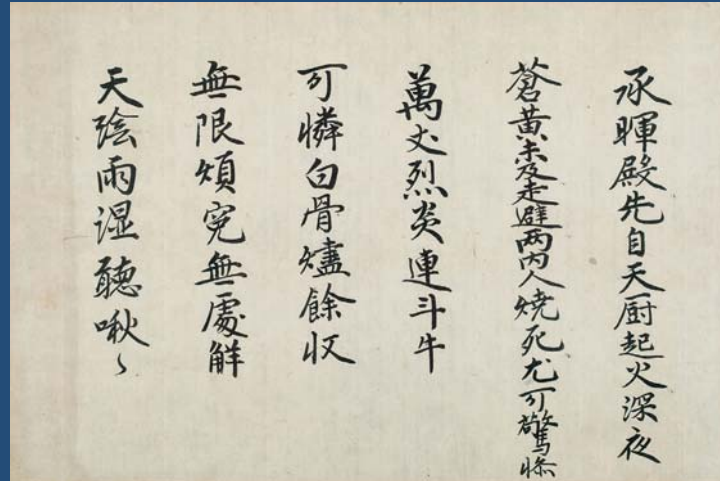 承暉殿先自天厨起火深夜
蒼黃未及走避兩內人燒死尤可驚慘
萬丈烈炎連斗牛
可憐白骨燼餘收
無限煩冤無處解
天陰雨濕聽啾〻